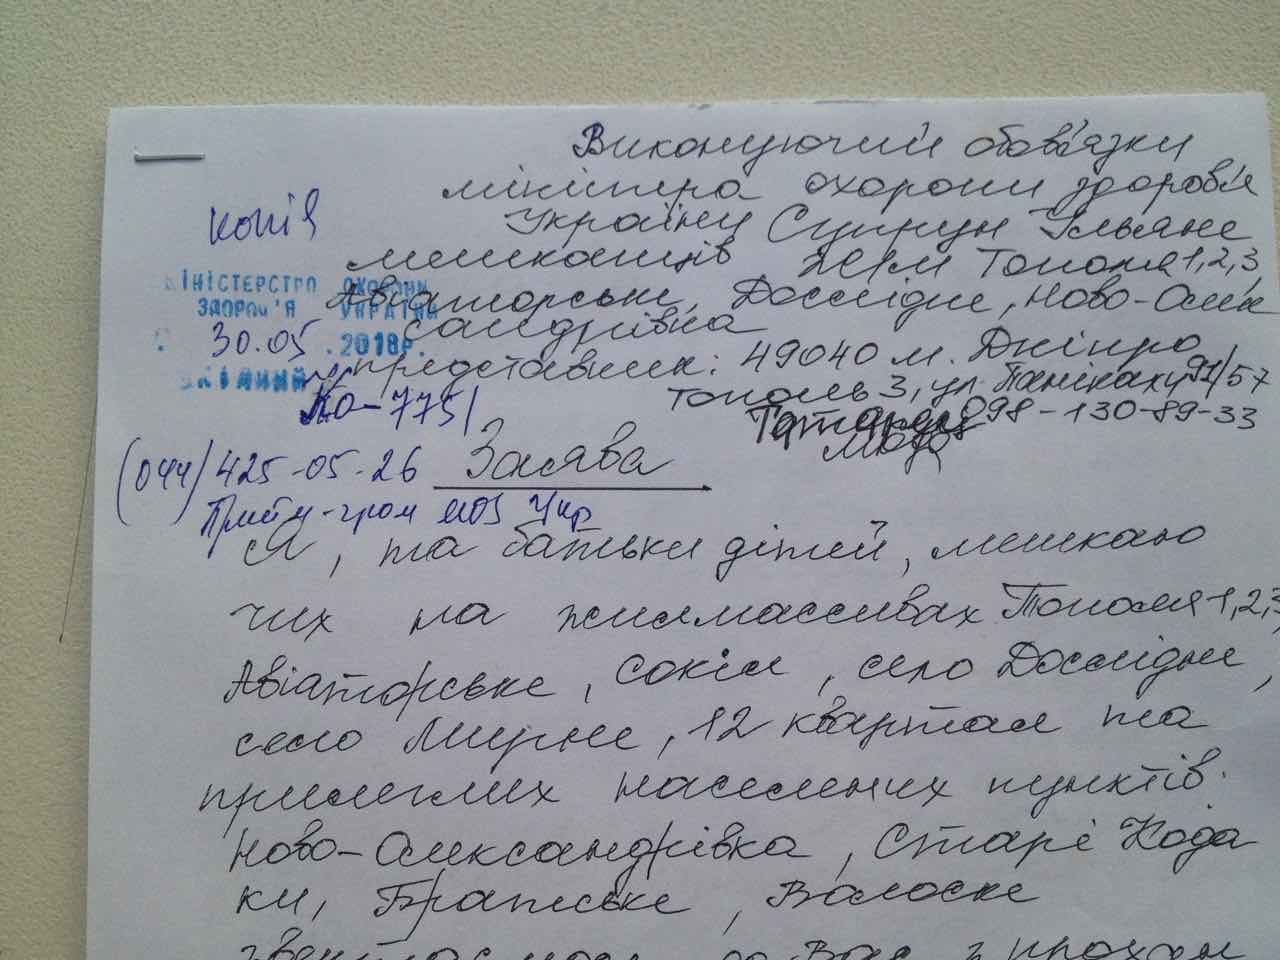 Виконуючий обов'язки
міністра охорони здоров'я
України Супрун Уляне
мешканців ж/м Тополя 1,2,3,
Авіаторське, Дослідне, Ново-Олек
сандрівка
представник: 49040 м. Дніпро
Тополь 3, ул. Панікахи 91/57
098-130-89-33
копія
МІНІСТЕРСТВО ОХОРОНИ
ЗДОРОВ'Я УКРАЇНИ
30.05.2018р.
КО-7751
(044) 425-05-26
Прийм-гром МОЗ Укр
Заява
Я, та батьки дітей, мешкаю
чих на жилмассивах Тополя 1,2,3,
Авіаторське, Сокіл, село Дослідне,
село Мирне, 12 квартал та
прилеглих населених пунктів:
Ново-Олександрівка, Старі Кода
ки, Братське, Волоске
звертаємось до Вас з прохан